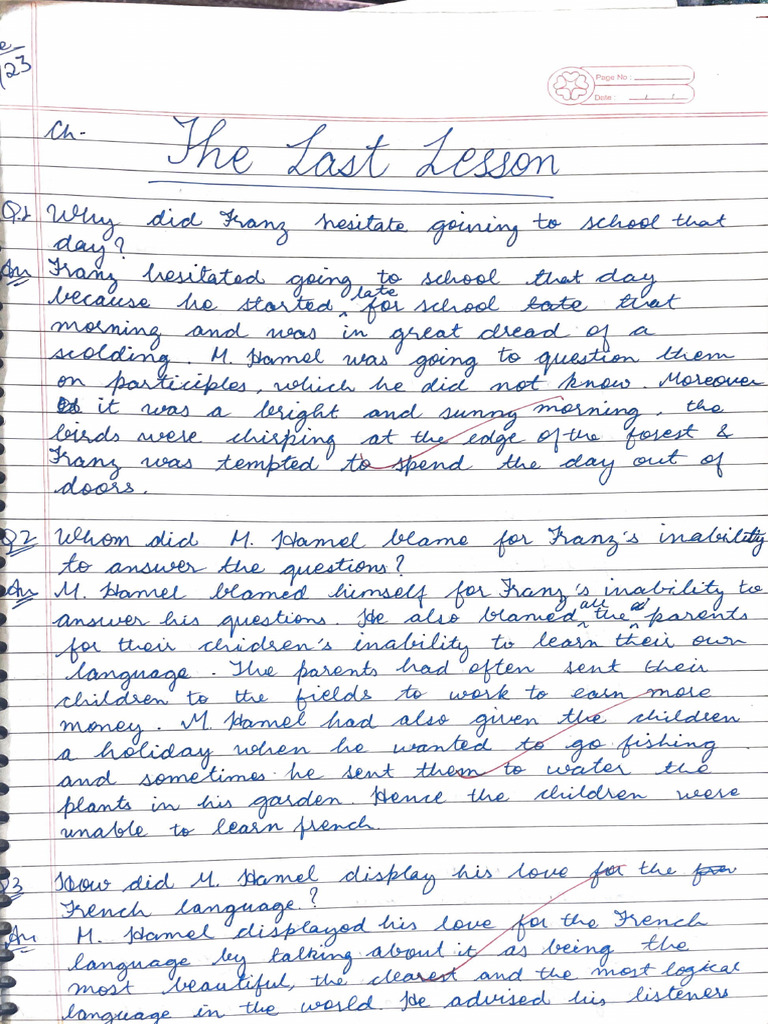 e
/23
Page No:
Date: / /
Ch- The Last Lesson
Q1 Why did Franz hesitate goining to school that
day?
Ans Franz hesitated going to school that day
because he started late for school late that
morning and was in great dread of a
scolding. M. Hamel was going to question them
on participles, which he did not know. Moreover
it was a bright and sunny morning, the
birds were chirping at the edge of the forest &
Franz was tempted to spend the day out of
doors.
Q2 Whom did M. Hamel blame for Franz's inability
to answer the questions?
Ans M. Hamel blamed himself for Franz's inability to
answer his questions. He also blamed all the parents
for their children's inability to learn their own
language. The parents had often sent their
children to the fields to work to earn more
money. M. Hamel had also given the children
a holiday when he wanted to go fishing
and sometimes he sent them to water the
plants in his garden. Hence the children were
unable to learn french.
Q3 How did M. Hamel display his love for the
French language?
Ans M. Hamel displayed his love for the French
language by talking about it as being the
most beautiful, the clearest and the most logical
language in the world. He advised his listeners